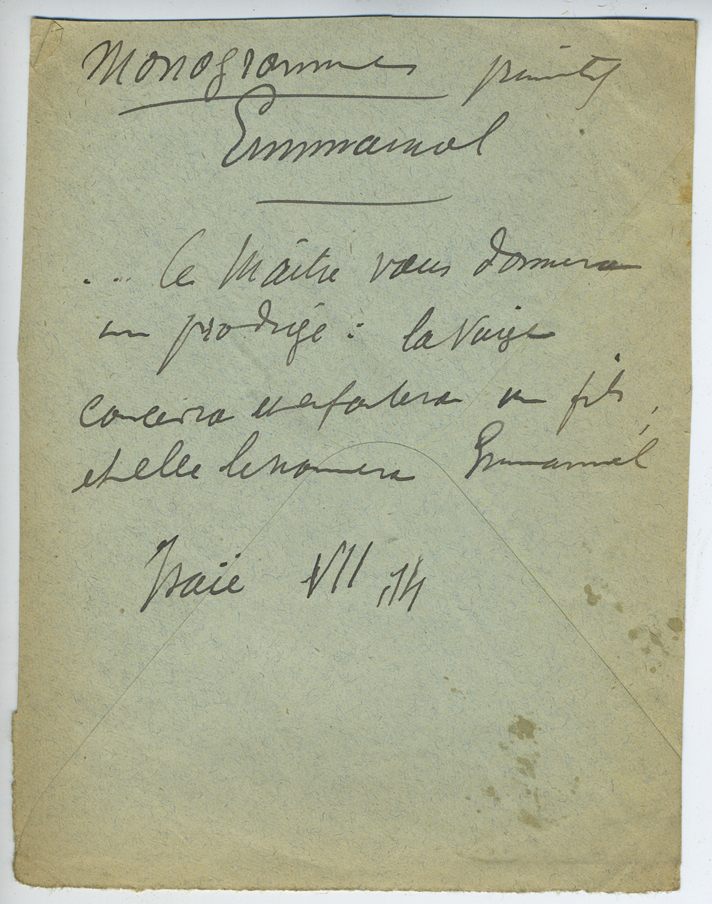 Monogrammes
Emmanuel
... Le Maître vous donnera
un prodige : la Vierge
concevra et enfantera un fils,
et elle le nommera Emmanuel
Isaïe VII, 14